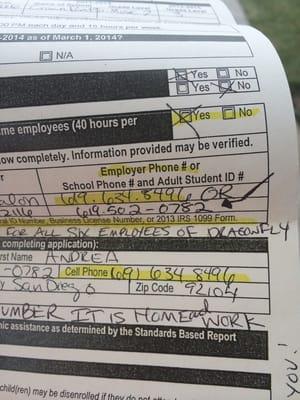 PM each day and
-2014 as of March 1, 2014?
N/A
Yes No
Yes No
Yes No
me employees (40 hours per
ow completely. Information provided may be verified.
Employer Phone # or
School Phone # and Adult Student ID #
619.634.8496 OR
619-502-0782
ral ID Number, Business License Number, or 2013 IRS 1099 Form.
FOR ALL SIX EMPLOYEES OF DRAGONFLY
completing application):
rst Name ANDREA
-0782 Cell Phone (619) 634 8496
y San Diego Zip Code 92104
NUMBER IT IS HOME and WORK
mic assistance as determined by the Standards Based Report
child(ren) may be disenrolled if they do not
YOU!